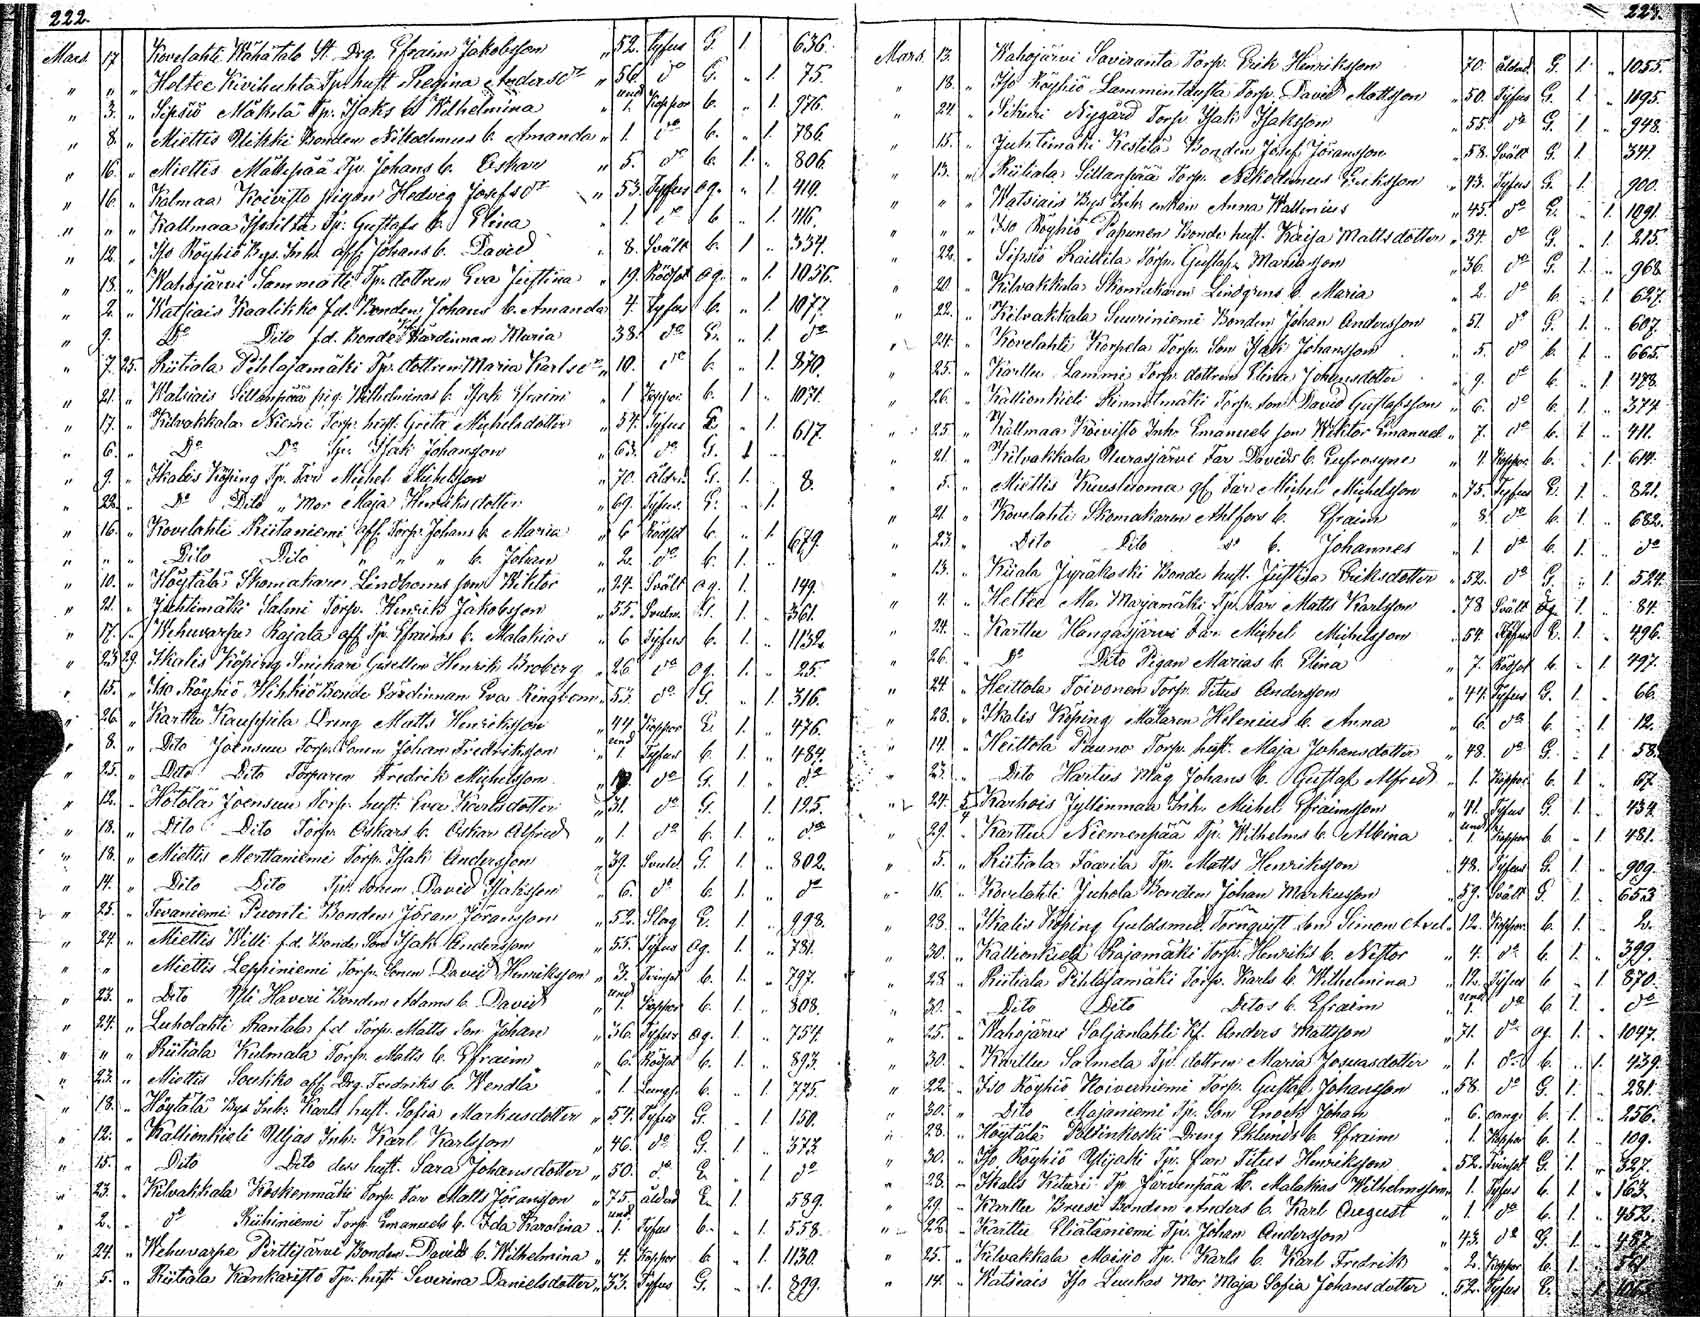 222.
Mars 17 Kovelahti Wähätalo St. Drg. Efraim Jakobsson 52. Tyfus G. 1 636.
" " " Heltee Kivihuhta Tp. hust. Regina Andersdr " 56. do G. " 1. 75.
" 3. " Sipsiö Mäkelä Tp. Isaks b. Wilhelmina " und 1. Koppor b. " 1. 976.
" 8. " Miettis Uckki Bonden Nikodemus b. Amanda " 1. do b. " 1. 786.
" 16. " Miettis Mäkipää Tp. Johans b. Oskar " 5. do b. 1. " 806.
" 16. " Kalmaa Koivisto pigan Hedvig Josefsdr 53. Tyfus og. " 1. 410.
" " " Kallmaa Tp. Gustafs b. Elina " 1. do b. " 1. 416.
" 12. " Iso Röyhiö Bys. Inh. aff. Johans b. David " 8. Svält b. 1 " 334.
" 18. " Wahojärvi Sammatti Tp. dottren Eva Justina " 19. Rödsot og. " 1. 1056.
" 2. " Watsiais Kaalikko f.d. Bonden Johans b. Amanda 4. Tyfus b. " 1. 1077.
" 9. Do Dito f.d. Bonde Värdinnan Maria " 38. do E. " 1. do
" 7. 25. Riitiala Pihlajamäki Tp. dottren Maria Karlsdr " 10. do b. " 1. 870.
" 21. " Watsiais Sillanpää pig. Wilhelminas b. Isak Efraim " 1 Koppor b. 1 " 1071.
" 17. " Kilvakkala Niemi Torp. hust. Greta Michelsdotter " 34. Tyfus E " 1. 617.
" 6. " Do Do Tp. Isak Johansson " 63. do G. 1 "
" 9. " Ikalis Köping Tp. Far Michel Michelsson " 70. Åldrd. G. 1. " 8.
" 22. " Do Dito " Mor Maja Henriksdotter " 69. Tyfus. E. " 1.
" 16. " Kovelahti Riitaniemi Aff. Torp. Johans b. Maria " 6 Rödsot b. " 1 679.
" " " Dito Dito " " " b. Johan " 2. do b. 1. "
" 10. " Höytälä Skomakare Lindboms son Viktor " 24. Svält og. 1. " 149.
" 21. " Juhtimäki Salmi Torp. Henrik Jakobsson " 55. G. 1. " 361.
" 17. " Wehuvarpe Rajala aff. Tp. Efraims b. Malakias " 6 Tyfus b. 1. " 1132.
" 23 29. Ikalis Köping Snickare Gesellen Henrik Broberg " 26. do og. 1. " 25.
" 15. " Iso Röyhiö Hihkiö Bonde Värdinnan Eva Ringbom " 53. do G. " 1. 316.
" 26. " Karttu Kauppila Dreng Matts Henriksson " 44 Koppor E. 1 " 476.
" 8. " Dito Joensuu Torp. Sonen Johan Fredriksson " und 1. Tyfus b. 1. " 484.
" 25. " Dito Dito Torparen Fredrik Michelsson do G. 1. " do
" 12. " Kotola Joensuu Torp. hust. Eva Karlsdotter " 31. do G. " 1. 125.
" 18. " Dito Dito Torp. Oskars b. Oskar Alfred " 1. do b. 1. " do
" 18. " Miettis Merttaniemi Torp. Isak Andersson " 39. G. 1. " 802.
" 14. " Dito Dito Tp. Sonen David Isaksson " 6. do b. 1. " do
" 25. " Tevaniemi Puonti Bonden Jöran Jöransson " 52. Slag E. 1. " 998.
" 24. " Miettis Willi f.d. Bonde Son Isak Andersson " 55. Tyfus og. 1. " 781.
" " " Miettis Leppiniemi Torp. Sonen David Henriksson " 3. b. 1. " 797.
" 23. " Dito Yli Haveri Bonden Adams b. David " und 1. Koppor b. 1. " 808.
" 24. " Luhalahti Rantala f.d. Torp. Matts Son Johan " 36. Tyfus og. 1. " 754.
" " " Riitiala Kulmala Torp. Matts b. Efraim " 6. Rödsot b. 1. " 893.
" 23. " Miettis Soukko aff. Drg. Fredriks b. Wendla " 1. Lungs. b. " 1. 775.
" 18. " Höytälä Bys Inh. Karls hust. Sofia Markusdotter " 54. Tyfus G. " 1 150.
" 12. " Kallionkieli Uljas Inh. Karl Karlsson " 46. do G. 1. " 373
" 15. " Dito Dito dess hust. Sara Johansdotter " 50. do E. " 1 do
" 23. " Kilvakkala Koskenmäki Torp. Far Matts Jöransson " 75. åldrd E. 1 " 589.
" 2. " do Riihiniemi Torp. Emanuels b. Ida Karolina " und 1. Tyfus b. " 1. 558.
" 24. " Wehuvarpe Pirttijärvi Bonden Davids b. Wilhelmina " 4. Koppor b. " 1. 1130.
" 5. " Riitiala Kankaristo Tp. hust. Severina Danielsdotter " 33. Tyfus G. " 1. 899.
223.
Mars 13. " Wahojärvi Saviranta Torp. Erik Henriksson 70. åldrd. G. 1. " 1055.
" 18. " Iso Röyhiö Lammintausta Torp. David Mattsson " 50. Tyfus G. 1. " 1095.
" 24. " Sikuri Nygård Torp. Isak Isaksson " 55. do G. 1. " 948.
" 15. " Juhtimäki Kestilä Bonden Josef Jöransson " 58. Svält G. 1. " 341.
" 13. " Riitiala Sillanpää Torp. Nikodemus Eriksson " 43. Tyfus G. 1 " 900.
" " " Watsiais Bys Inh. enkan Anna Wallenius " 45. do E. " 1. 1091.
" " " Iso Röyhiö Papunen Bonde hust. Kaisa Mattsdotter " 34. do G. " 1. 215.
" 22. " Sipsiö Raikkila Torp. Gustaf Mariasson " 36. do G. 1. " 968
" 20. " Kilvakkala Skomakaren Lindgrens b. Maria " 2. do b. " 1 627.
" 22. " Kilvakkala Suuriniemi Bonden Johan Andersson " 51. do G. 1. " 607.
" 24. " Kovelahti Korpela Torp. Son Isak Johansson " 5. do b. 1. " 665.
" 25. " Karttu Lammi Torp. dottren Elina Johansdotter " 9. do b. " 1 478.
" 26. " Kallionkieli Rinnelmäki Torp. Son David Gustafsson " 6. do b. 1. " 374
" 25. " Kallmaa Koivisto Inh. Emanuels son Wiktor Emanuel " 7. do b. 1 " 411.
" 21 " Kilvakkala Uurasjärvi Far Davids b. Eufrosyne " 4. Koppor b. " 1. 614.
" 5. " Miettis Kuusluoma gf. Far Michel Michelsson " 75. Tyfus E. 1. " 821.
" 21 " Kovelahti Skomakaren Ahlfors b. Efraim " 8. do b. 1. " 682.
" 23. " Dito Dito do b. Johannes " 1. do b. 1. " do
" 13. " Kiiala Jyräkoski Bonde hust. Justina Eriksdotter " 52. do G. " 1. 524.
" 4. " Heltee Marjamäki Tp. Far Matts Karlsson " 78 Svält Eg. 1. " 84.
" 24. " Karttu Hangasjärvi Far Michel Michelsson " 54. E. 1. " 496.
" 26. " Do Dito Pigan Marias b. Elina " 7. Rödsot b. " 1 497.
" 24. " Heittola Toivonen Torp. Titus Andersson " 44. Tyfus G. 1. " 66.
" 28. " Ikalis Köping Målaren Helenius b. Anna " 6. do b. " 1. 12.
" 14. " Heittola Pauno Torp. hust. Maja Johansdotter " 48. do G. " 1. 58.
" 27. " Dito Hartus Måg Johans b. Gustaf Alfred " 1. Koppor b. 1. " 67.
" 24. Karhois Jyllinmaa Inh. Michel Efraimsson " 41. Tyfus G. 1. " 434
" 29. " Karttu Niemenpää Tp. Wilhelms b. Albina " und 1. Koppor b. " 1 481.
" 5. " Riitiala Taarila Tp. Matts Henriksson " 48. Tyfus G. 1. " 909.
" 16. " Kovelahti Juhola Bonden Johan Markusson " 59. Svält G. 1. " 653
" 28. " Ikalis Köping Guldsmed. Törnqvist Son Simon Axel " 12. Koppor b. 1. " 2.
" 30. " Kallionkieli Rajamäki Torp. Henriks b. Nestor " 4. do b. 1. " 399.
" 28. " Riitiala Pihlajamäki Torp. Karls b. Wilhelmina " 12. Tyfus b. " 1 870.
" 30. " Dito Dito Ditos b. Efraim " und 1. do b. 1. " do
" 25. " Wahojärvi Poljanlahti Anders Mattsson " 71. do og. 1. " 1047.
" 30. " Karttu Salmela Tp. dottren Maria Josuasdotter " 1. do b. " 1 439.
" 22. " Iso Röyhiö Koivuniemi Torp. Gustaf Johansson " 58. do G. 1. " 281.
" 30. " Dito Majaniemi Tp. Son Enock Johan " 6. b. 1. " 256.
" 28. " Höytälä Poltinkoski Dreng Eklunds b. Efraim " 1. Koppor b. 1. " 109.
" 30. " Iso Röyhiö Ylijaki Tp. Far Titus Henriksson " 52. G. 1. " 327.
" 28. " Ikalis Kilari Tp. Järvenpää b. Malakias Wilhelmsson " 1. Tyfus b. 1. " 163.
" 29. " Karttu Bruse Bonden Anders b. Karl August " 1. do b. 1. " 452.
" 22. " Karttu Eliätaniemi Tp. Johan Andersson " 43. do G. 1. " 487.
" 25. " Kilvakkala Moisio Tp. Karls b. Karl Fredrik " 2. Koppor b. 1. "
" 14. " Watsiais Iso Luukas Mor Maja Sofia Johansdotter " 52. Tyfus E. " 1.